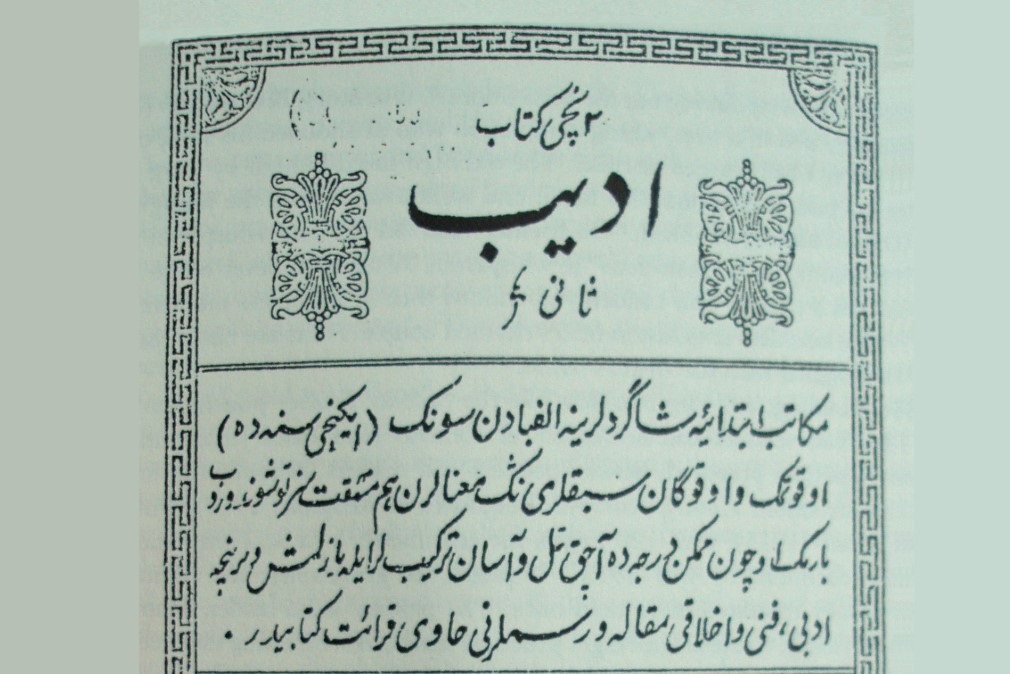 ۲ نچی کتاب
ادیب
ثانی
مکاتب ابتدائیه شاگردلرینه الفبادن سونک (ایکنچی سنه‌ده)
اوقوتمک و اوقوگان سبقلری نگ معنالرن هم مشقت سز توشوندوروب
بارمک اوچون ممکن درجه‌ده آچق تل و آسان ترکیب لر ایله یازلمش و برنچه
ادبی، فنی و اخلاقی مقاله و رسملرنی حاوی قرائت کتابیدر .